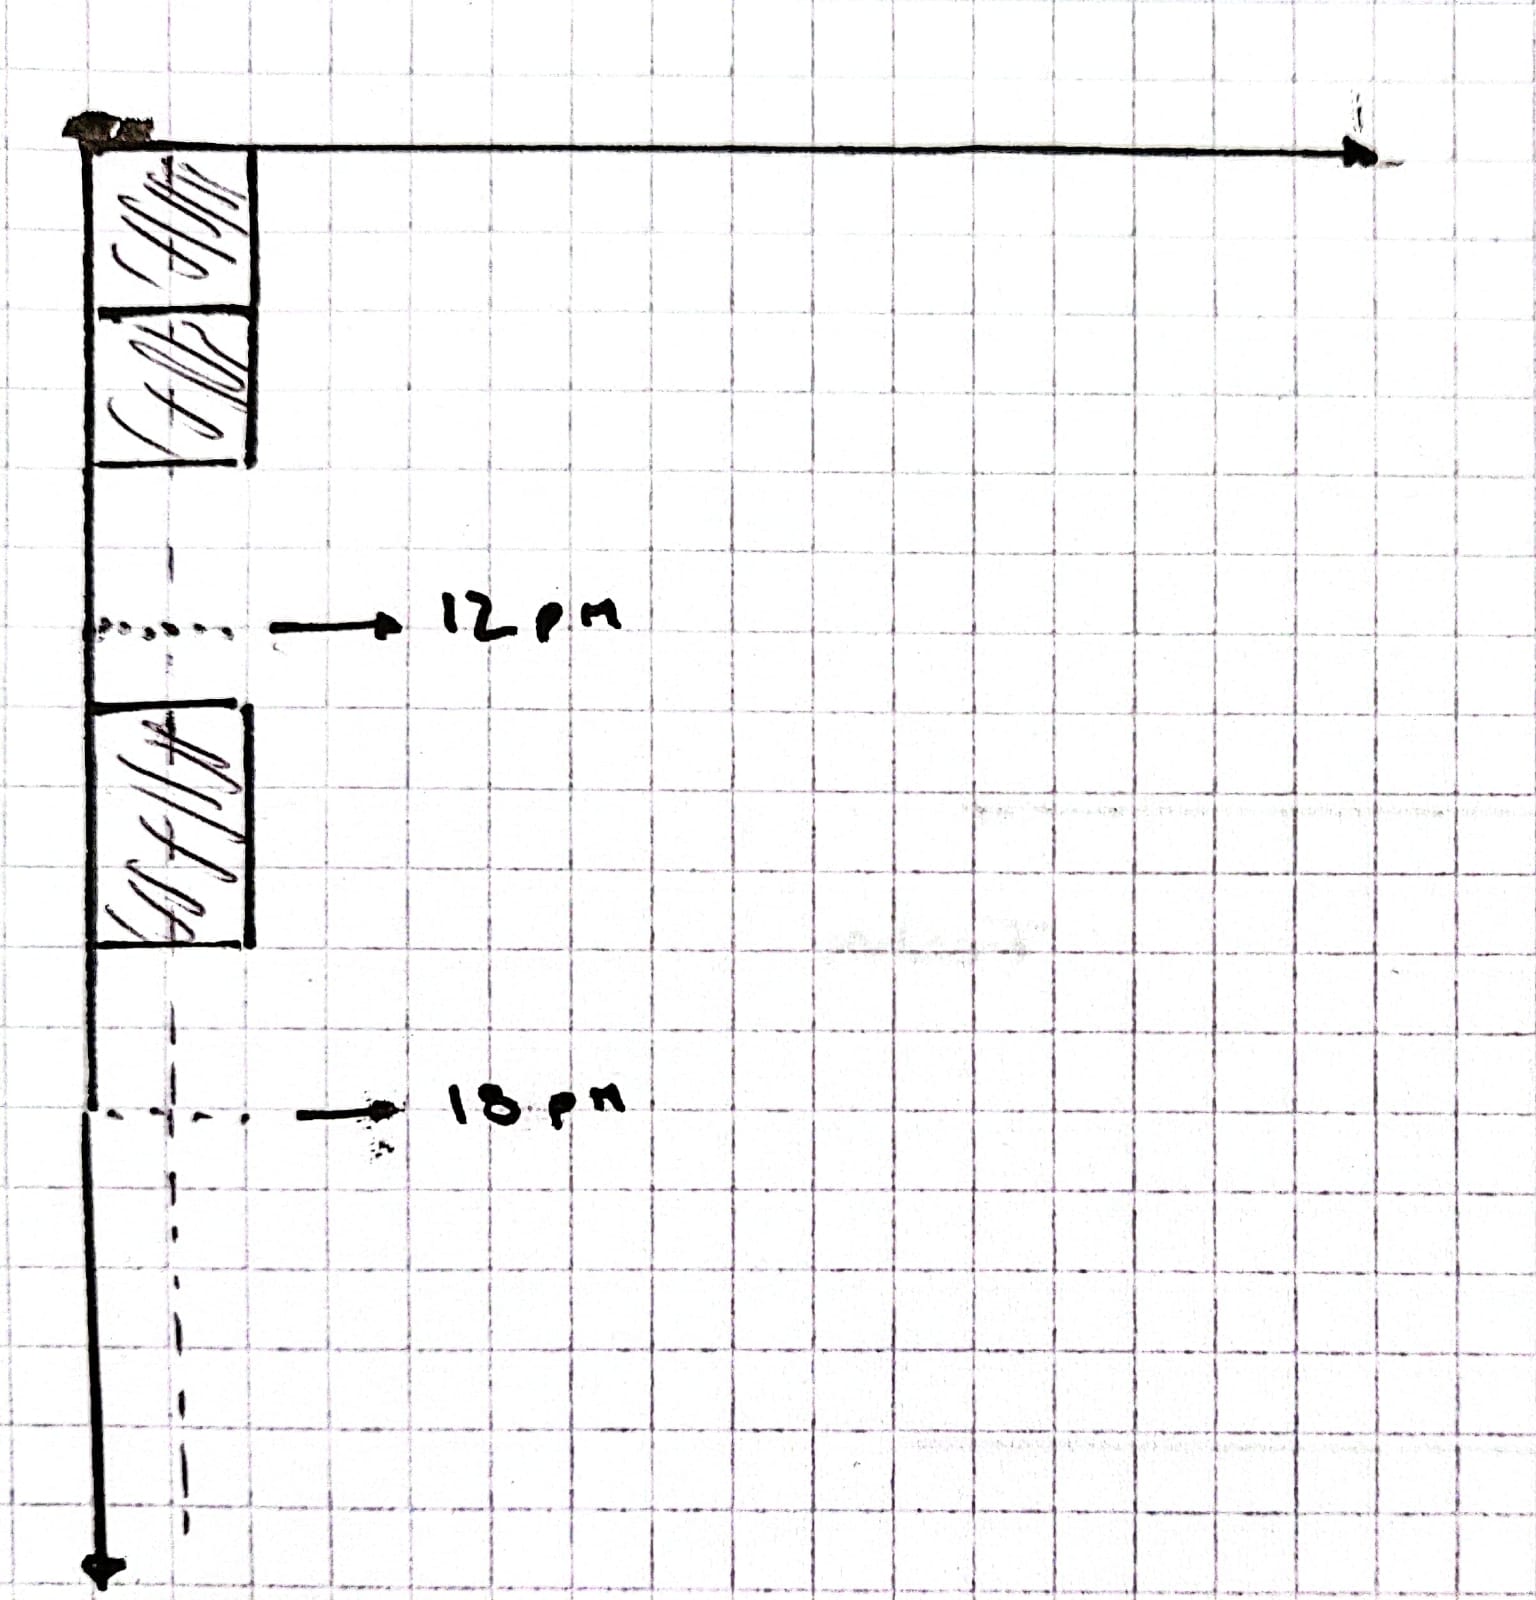 12 pm
18 pm